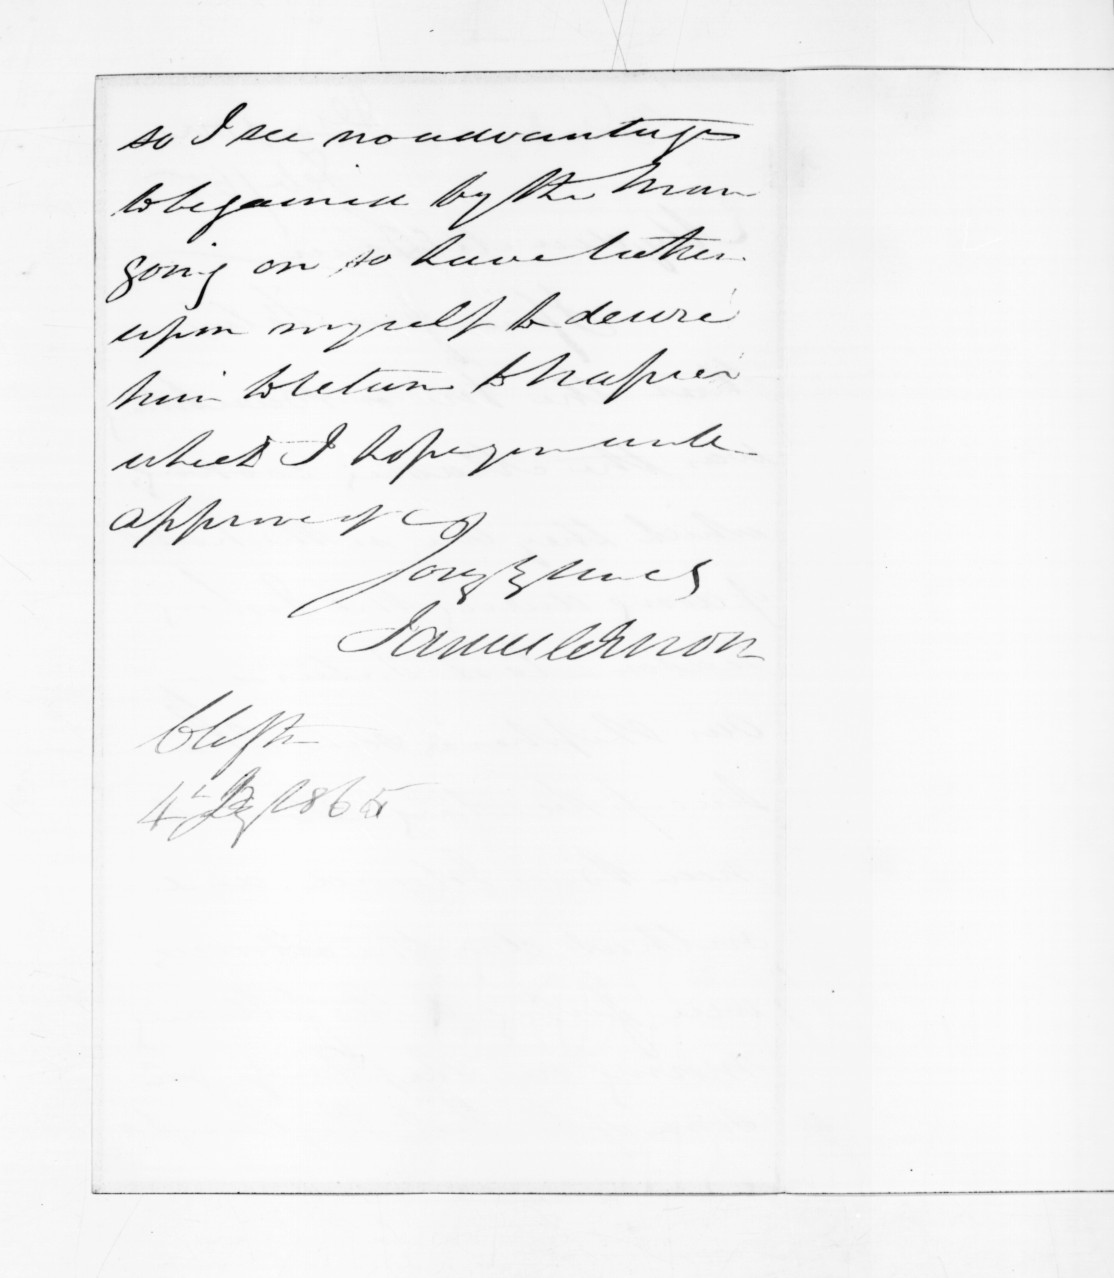 so I see no advantage
to be gained by the man
going on so have taken
upon myself to desire
him to return to Napier
which I hope you will
approve of
Yours
4th 1865